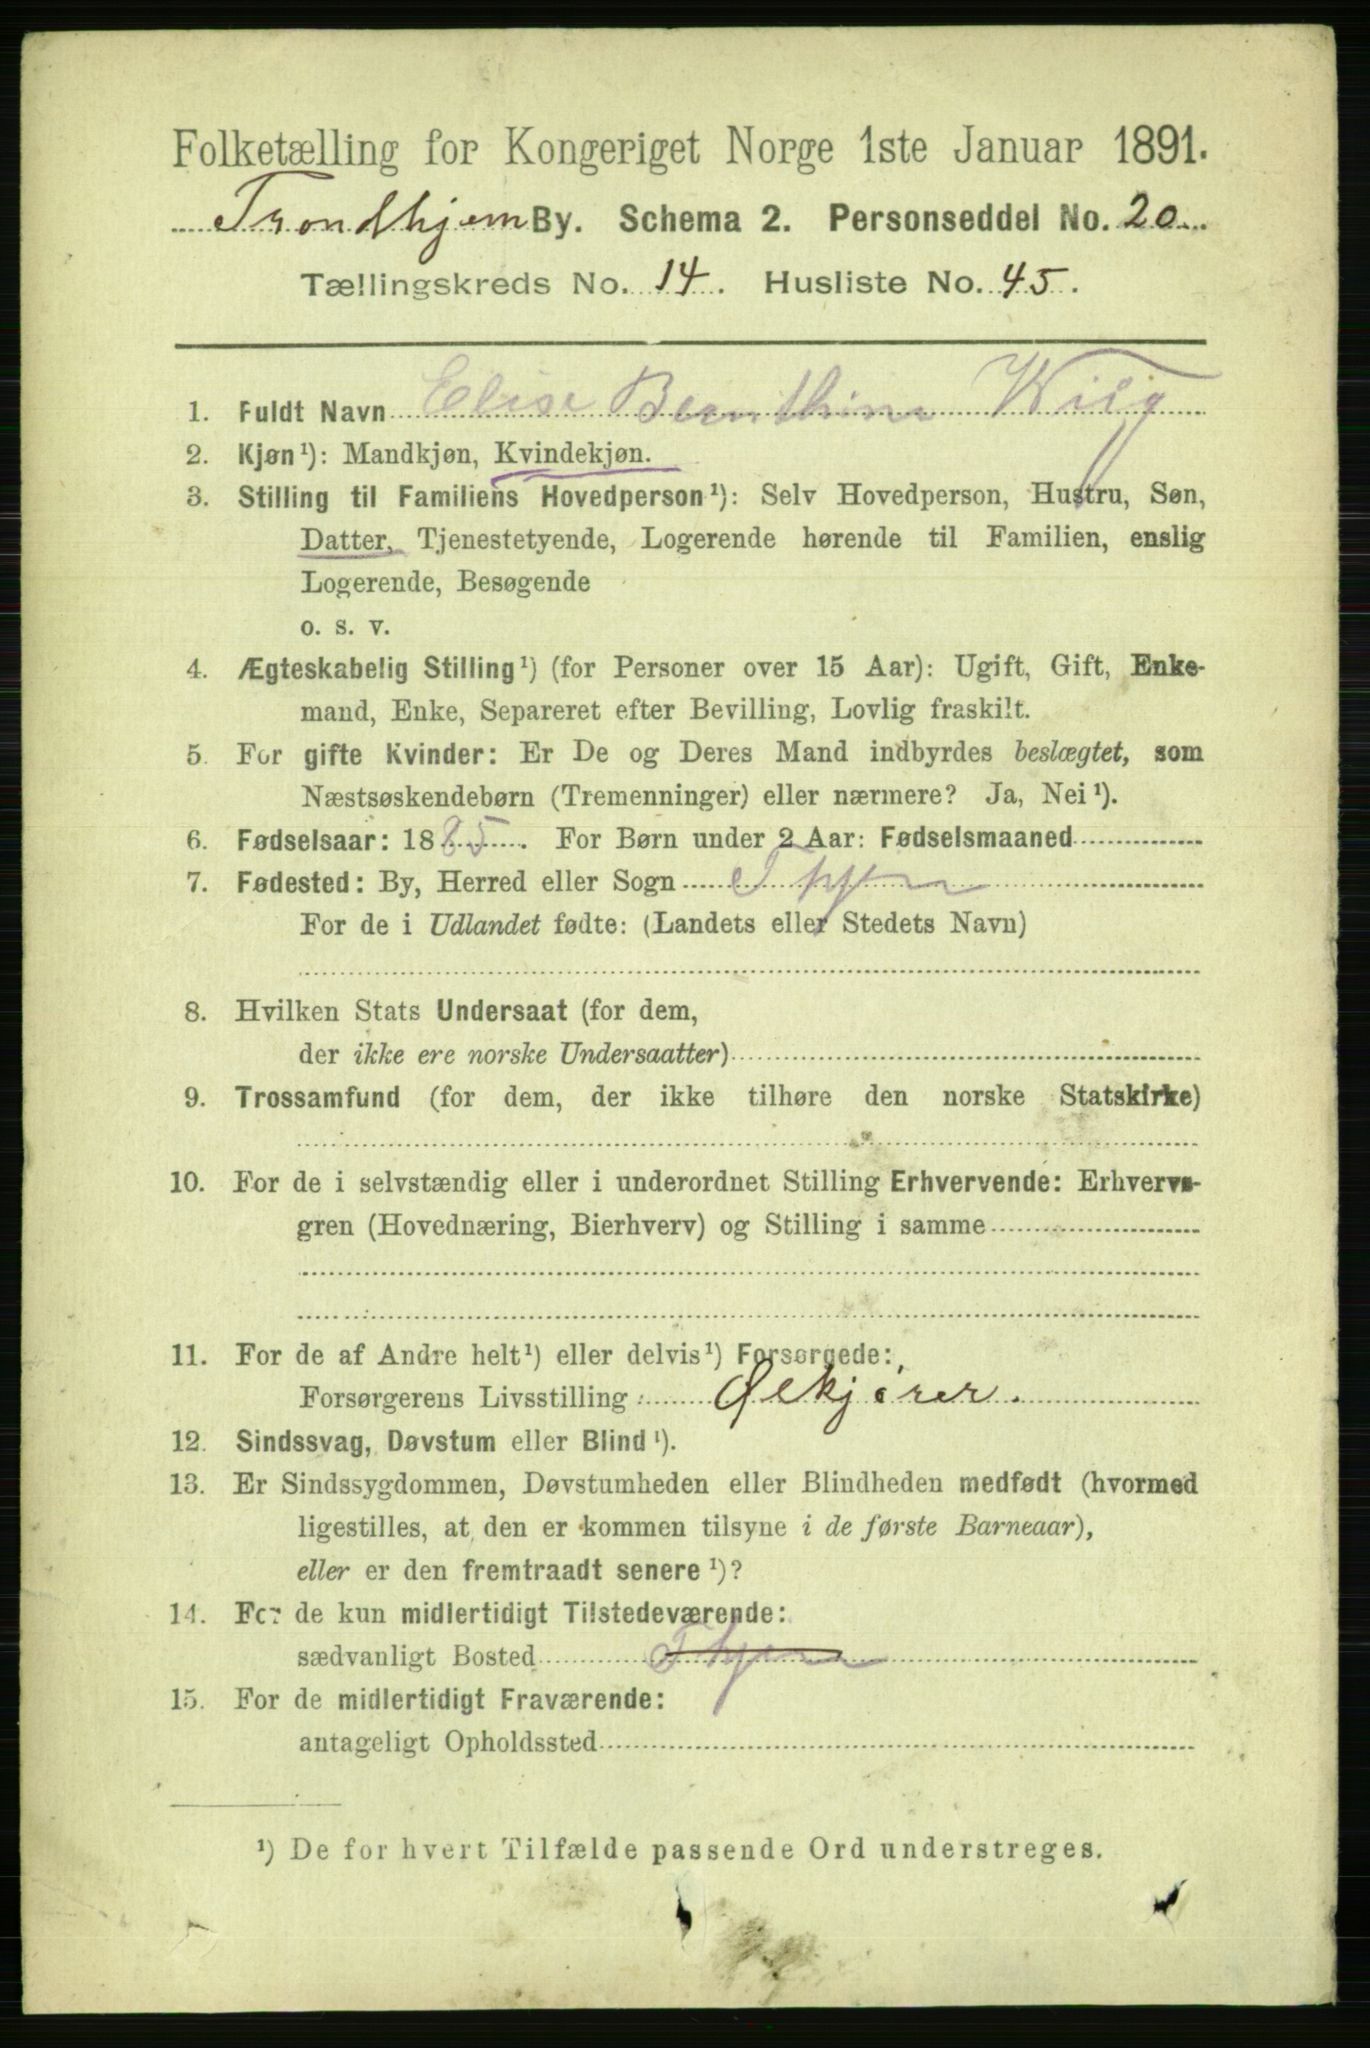 Folketælling for Kongeriget Norge 1ste Januar 1891.
Trondhjem By. Schema 2. Personseddel No. 20
Tællingskreds No. 14. Husliste No. 45.
1. Fuldt Navn Elise Bernthine Wiig
2. Kjøn¹): Mandkjøn, Kvindekjøn.
3. Stilling til Familiens Hovedperson¹): Selv Hovedperson, Hustru, Søn,
Datter, Tjenestetyende, Logerende hørende til Familien, enslig
Logerende, Besøgende
o. s. v.
4. Ægteskabelig Stilling¹) (for Personer over 15 Aar): Ugift, Gift, Enke-
mand, Enke, Separeret efter Bevilling, Lovlig fraskilt.
5. For gifte Kvinder: Er De og Deres Mand indbyrdes beslægtet, som
Næstsøskendebørn (Tremenninger) eller nærmere? Ja, Nei¹).
6. Fødselsaar: 1885. For Børn under 2 Aar: Fødselsmaaned
7. Fødested: By, Herred eller Sogn Thjem
For de i Udlandet fødte: (Landets eller Stedets Navn)
8. Hvilken Stats Undersaat (for dem,
der ikke ere norske Undersaatter)
9. Trossamfund (for dem, der ikke tilhøre den norske Statskirke)
10. For de i selvstændig eller i underordnet Stilling Erhvervende: Erhvervs-
gren (Hovednæring, Bierhverv) og Stilling i samme
11. For de af Andre helt¹) eller delvis¹) Forsørgede:
Forsørgerens Livsstilling Ølkjører.
12. Sindssvag, Døvstum eller Blind¹).
13. Er Sindssygdommen, Døvstumheden eller Blindheden medfødt (hvormed
ligestilles, at den er kommen tilsyne i de første Barneaar),
eller er den fremtraadt senere¹)?
14. For de kun midlertidigt Tilstedeværende:
sædvanligt Bosted Thjem
15. For de midlertidigt Fraværende:
antageligt Opholdssted
¹) De for hvert Tilfælde passende Ord understreges.